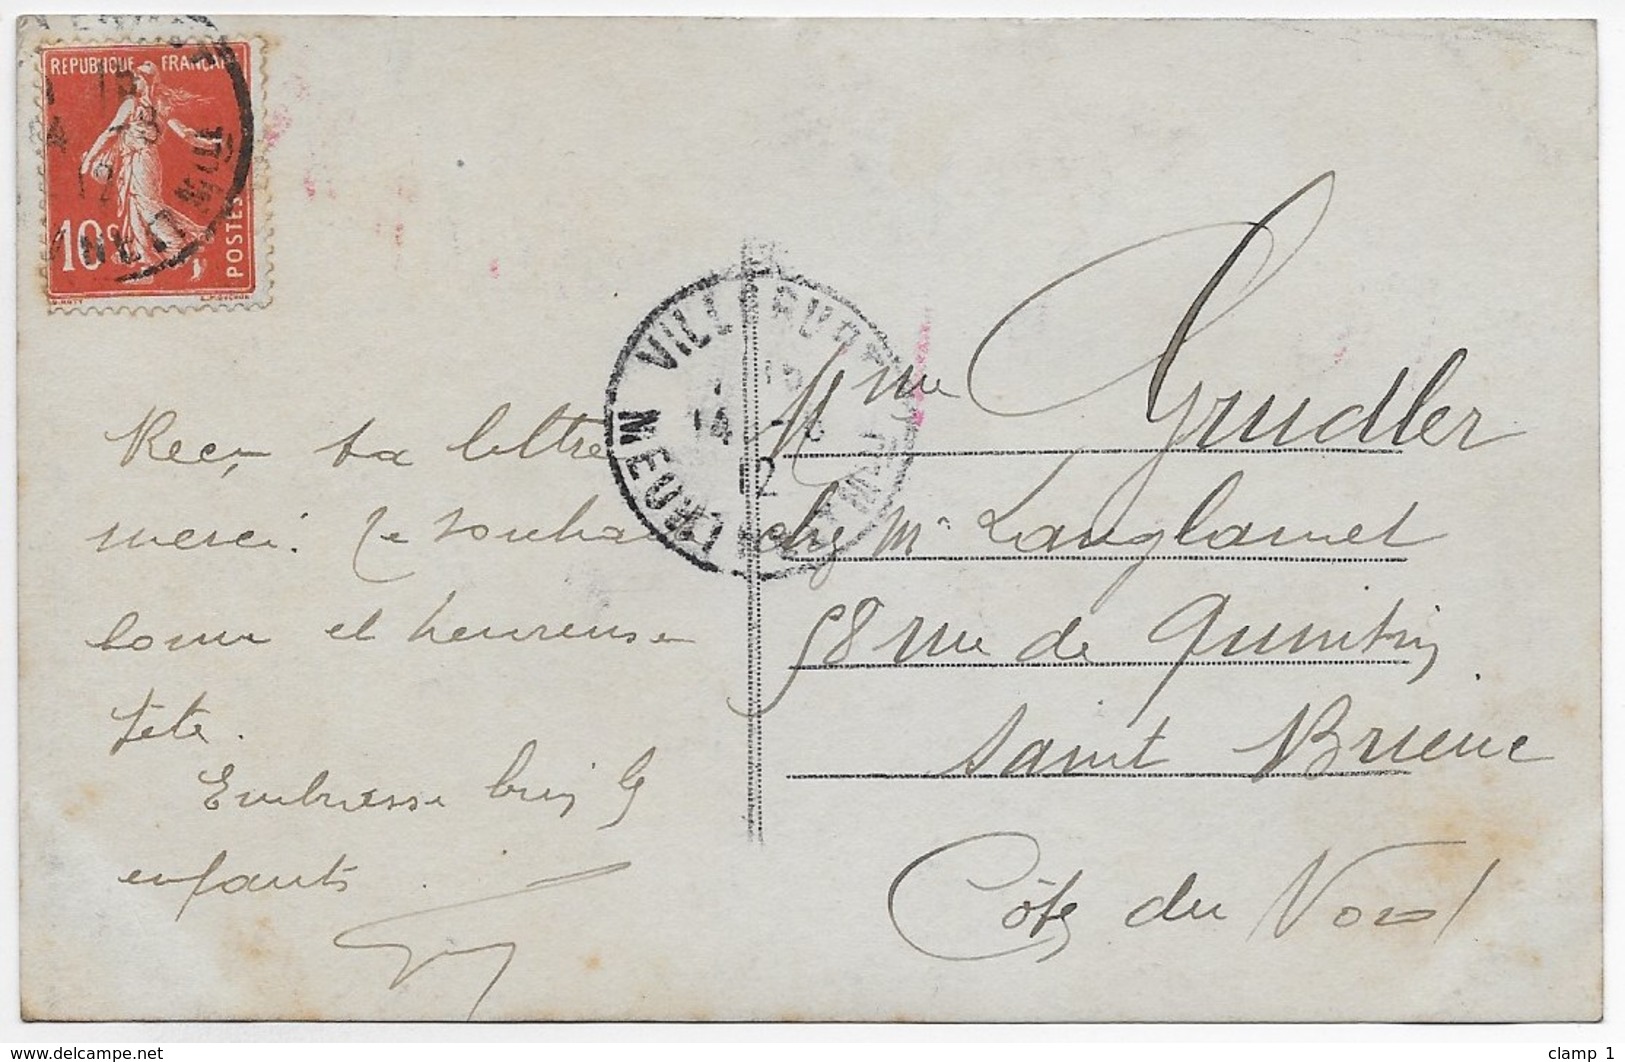 REPUBLIQUE FRANCAI
10c
POSTES
VILLERUPT
14 - 8
12
MEURTHE
Reçu ta lettre
merci. Je souhai
bonne et heureuse
fête.
Embrasse bien les
enfants.
Mme Grudler
chez Mr Langlamet
58 rue de Quintin
Saint Brieuc
Côtes du Nord
delcampe.net
clamp_1